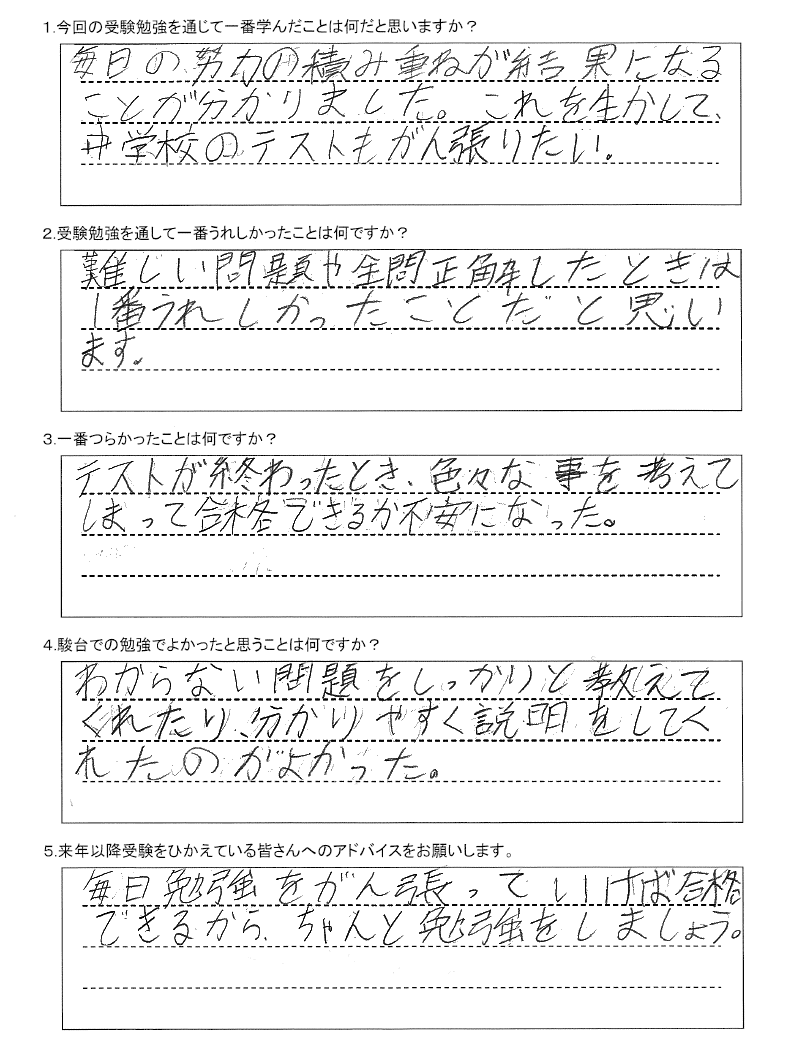 1.今回の受験勉強を通じて一番学んだことは何だと思いますか？
毎日の努力の積み重ねが結果になる
ことが分かりました。これを生かして、
中学校のテストもがん張りたい。
2.受験勉強を通して一番うれしかったことは何ですか？
難しい問題や全問正解したときは
1番うれしかったことだと思い
ます。
3.一番つらかったことは何ですか？
テストが終わったとき、色々な事を考えて
しまって合格できるか不安になった。
4.駿台での勉強でよかったと思うことは何ですか？
わからない問題をしっかりと教えて
くれたり、分かりやすく説明をしてく
れたのがよかった。
5.来年以降受験をひかえている皆さんへのアドバイスをお願いします。
毎日勉強をがん張っていけば合格
できるから、ちゃんと勉強をしましょう。